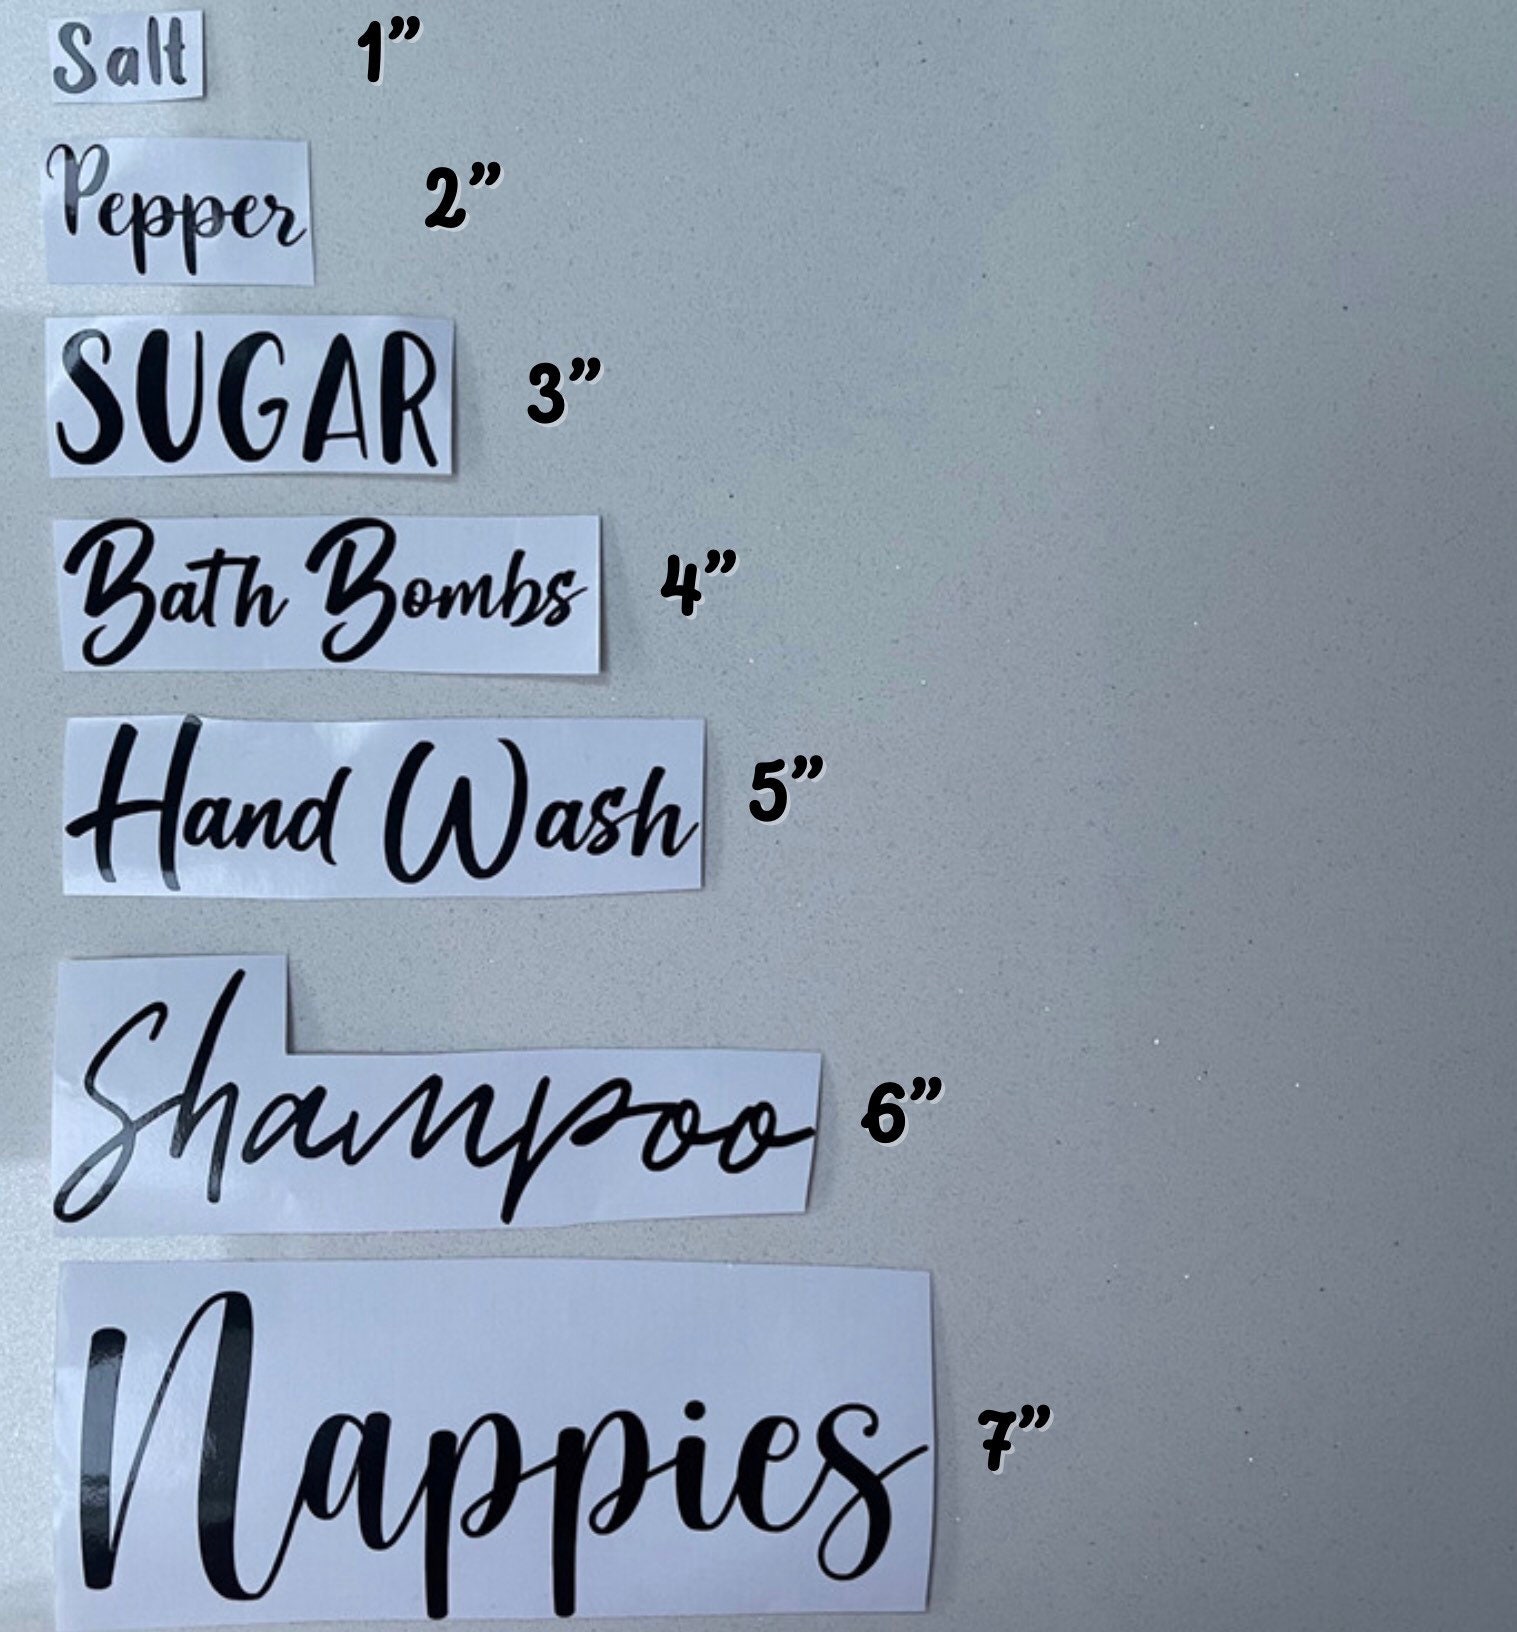 Salt 1”
Pepper 2”
SUGAR 3”
Bath Bombs 4”
Hand Wash 5”
Shampoo 6”
Nappies 7”